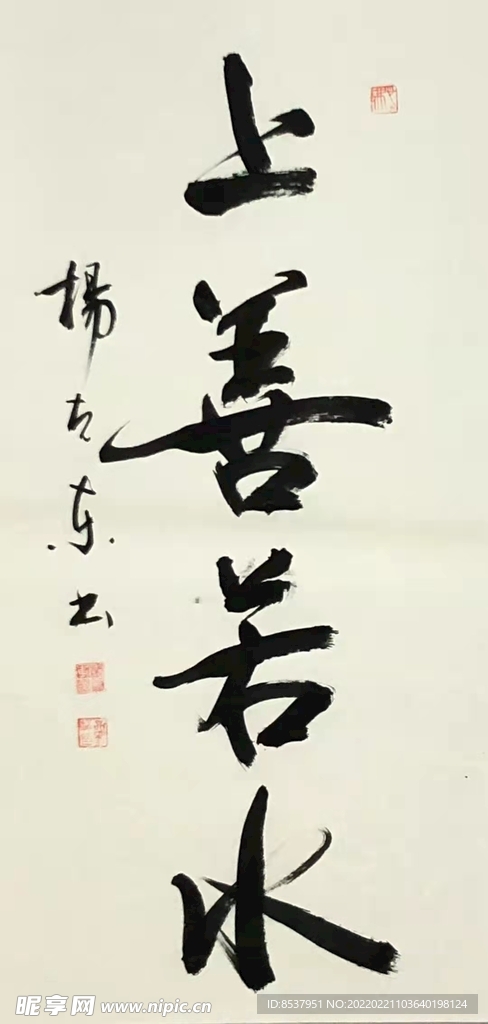 上善若水
楊古东书
昵享网 www.nipic.cn
ID:8537951 NO:20220221103640198124